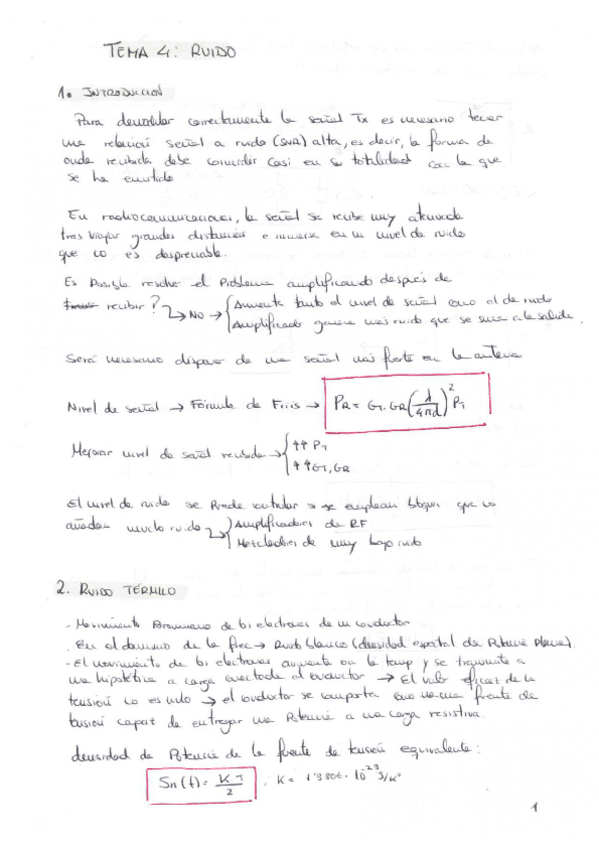 TEMA 4: RUIDO
1. INTRODUCCIÓN
Para demodular correctamente la señal Tx es necesario tener
una relación señal a ruido (SNR) alta, es decir, la forma de
onda recibida debe coincidir casi en su totalidad con la que
se ha emitido
En radiocomunicaciones, la señal se recibe muy atenuada
tras viajar grandes distancias e inmersa en un nivel de ruido
que no es despreciable.
Es Posible resolver el Problema amplificando después de
recibir? → NO → { Aumenta tanto el nivel de señal como el de ruido
Amplificador genera más ruido que se suma a la salida.
Será necesario disponer de una señal más fuerte en la antena
Nivel de señal → Fórmula de Friis → PR = GT · GR (λ/4πd)² PT
Mejorar nivel de señal recibida → { ↑↑ PT
↑↑ GT, GR
El nivel de ruido se Puede controlar si se emplean bloques que no
añadan mucho ruido → { Amplificadores de RF
Mezcladores de muy bajo ruido
2. RUIDO TÉRMICO
- Movimiento Browniano de los electrones de un conductor
. En el dominio de la frec → Ruido blanco (densidad espectral de Potencia Plana).
- El movimiento de los electrones aumenta con la temp y se transmite a
una hipotética carga conectada al conductor → El valor eficaz de la
tensión no es nulo → el conductor se comporta como una fuente de
tensión capaz de entregar una Potencia a una carga resistiva.
densidad de Potencia de la fuente de tensión equivalente:
Sn(f) = KT/2 , K = 1'3806 · 10⁻²³ J/K°
1